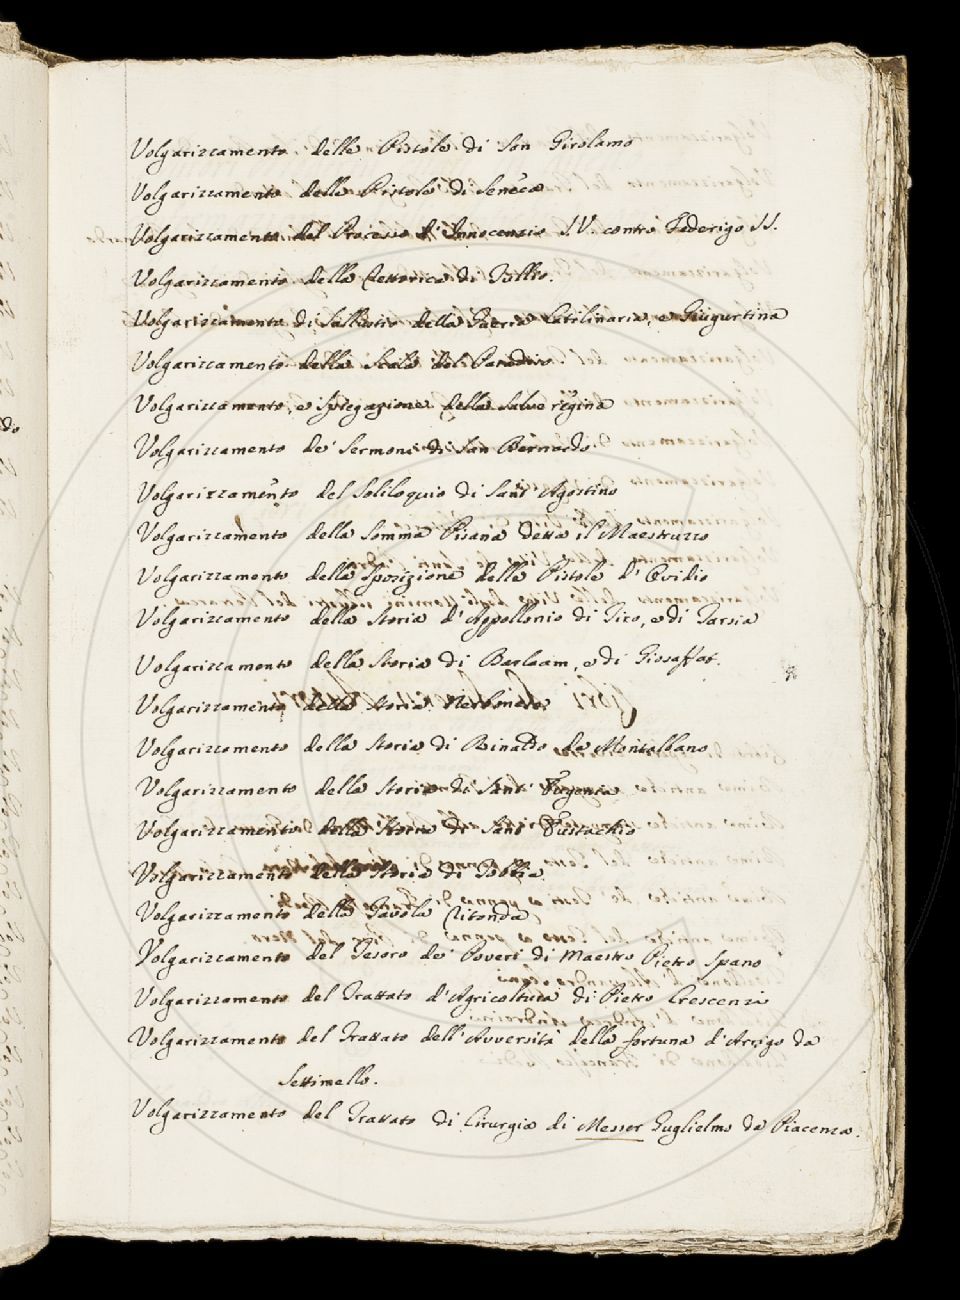 Volgarizzamento delle Pistole di San Girolamo
Volgarizzamento delle Pistole di Seneca
Volgarizzamento del Processo d'Innocenzio IV. contro Federigo II.
Volgarizzamento della Rettorica di Tullio.
Volgarizzamento di Sallustio della Guerra Catilinaria, e Giugurtina
Volgarizzamento della Scala del Paradiso
Volgarizzamento, e Spiegazione della Salve regina
Volgarizzamento de' Sermoni di San Bernardo
Volgarizzamento del Soliloquio di Sant' Agostino
Volgarizzamento della Somma Pisana detta il Maestruzzo
Volgarizzamento della Sposizione delle Pistole d'Ovidio
Volgarizzamento della Storia d'Appollonio di Tiro, e di Tarsia
Volgarizzamento della Storia di Barlaam, e di Giosaffat.
Volgarizzamento della Storia Nerbonese
Volgarizzamento della Storia di Rinaldo da Montalbano
Volgarizzamento della Storia di Sant' Eugenia
Volgarizzamento della Storia di Sant' Eustachio
Volgarizzamento della Storia di Tobbia
Volgarizzamento della Tavola Ritonda
Volgarizzamento del Tesoro de' Poveri di Maestro Pietro Spano
Volgarizzamento del Trattato d'Agricoltura di Pietro Crescenzi
Volgarizzamento del Trattato dell'Avversità della fortuna d'Arrigo da
Settimello.
Volgarizzamento del Trattato di Cirurgia di Messer Guglielmo da Piacenza.